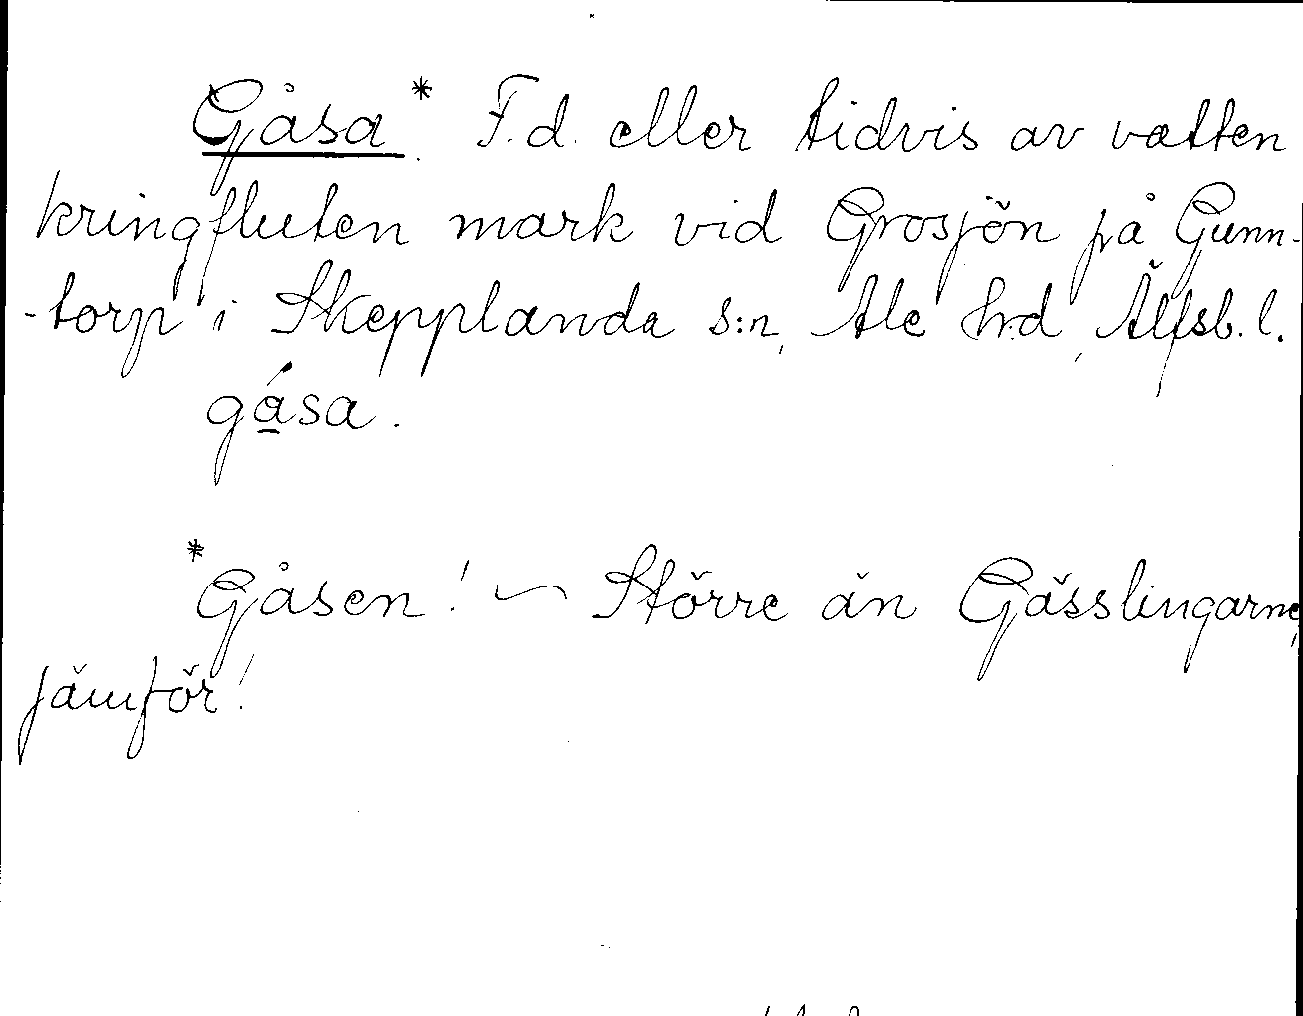 Gåsa.* F.d. eller tidvis av vatten
kringfluten mark vid Grosjön på Gunn-
-torp i Skepplanda s:n, Ale h:d, Älfsb. l.
gása.
*Gåsen! ~ Större än Gässlingarne,
jämför!